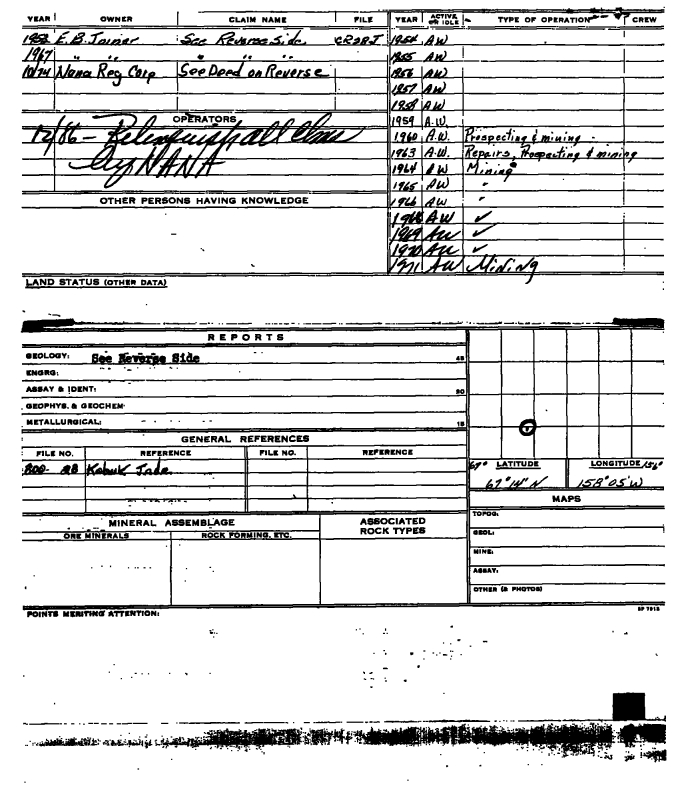 YEAR OWNER CLAIM NAME FILE
1953 E.B. Joiner See Reverse Side
1967 " " " " "
10/74 Nana Reg Corp See Deed on Reverse
OPERATORS
12/86 - Relinquish all Claims
by NANA
OTHER PERSONS HAVING KNOWLEDGE
LAND STATUS (OTHER DATA)
YEAR ACTIVE OR IDLE TYPE OF OPERATION CREW
1954 AW
1955 AW
1956 AW
1957 AW
1958 AW
1959 A.W.
1960 A.W. Prospecting & mining
1963 A.W. Repairs, Prospecting & mining
1964 AW Mining
1965 AW "
1966 AW "
1968 AW ✓
1969 AW ✓
1970 AW ✓
1971 AW Mining
REPORTS
GEOLOGY: See Reverse Side
ENGRG:
ASSAY & IDENT:
GEOPHYS. & GEOCHEM:
METALLURGICAL:
GENERAL REFERENCES
FILE NO. REFERENCE FILE NO. REFERENCE
Kobuk Inde.
MINERAL ASSEMBLAGE
ORE MINERALS ROCK FORMING, ETC.
ASSOCIATED ROCK TYPES
67° LATITUDE LONGITUDE 156°
67°14' N 158°05' W
MAPS
TOPOG:
GEOL:
MINE:
ASSAY:
OTHER (& PHOTOS)
POINTS MERITING ATTENTION: